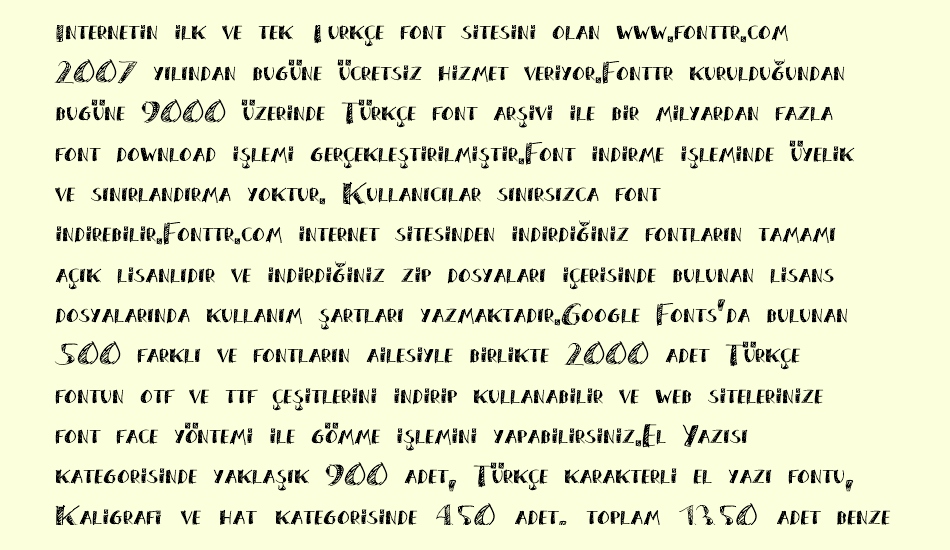 İnternetin ilk ve tek Türkçe font sitesini olan www.fonttr.com
2007 yılından bugüne ücretsiz hizmet veriyor.Fonttr kurulduğundan
bugüne 9000 üzerinde Türkçe font arşivi ile bir milyardan fazla
font download işlemi gerçekleştirilmiştir.Font indirme işleminde üyelik
ve sınırlandırma yoktur. Kullanıcılar sınırsızca font
indirebilir.Fonttr.com internet sitesinden indirdiğiniz fontların tamamı
açık lisanlıdır ve indirdiğiniz zip dosyaları içerisinde bulunan lisans
dosyalarında kullanım şartları yazmaktadır.Google Fonts'da bulunan
500 farklı ve fontların ailesiyle birlikte 2000 adet Türkçe
fontun otf ve ttf çeşitlerini indirip kullanabilir ve web sitelerinize
font face yöntemi ile gömme işlemini yapabilirsiniz.El Yazısı
kategorisinde yaklaşık 900 adet, Türkçe karakterli el yazı fontu,
Kaligrafi ve hat kategorisinde 450 adet. toplam 1350 adet benze